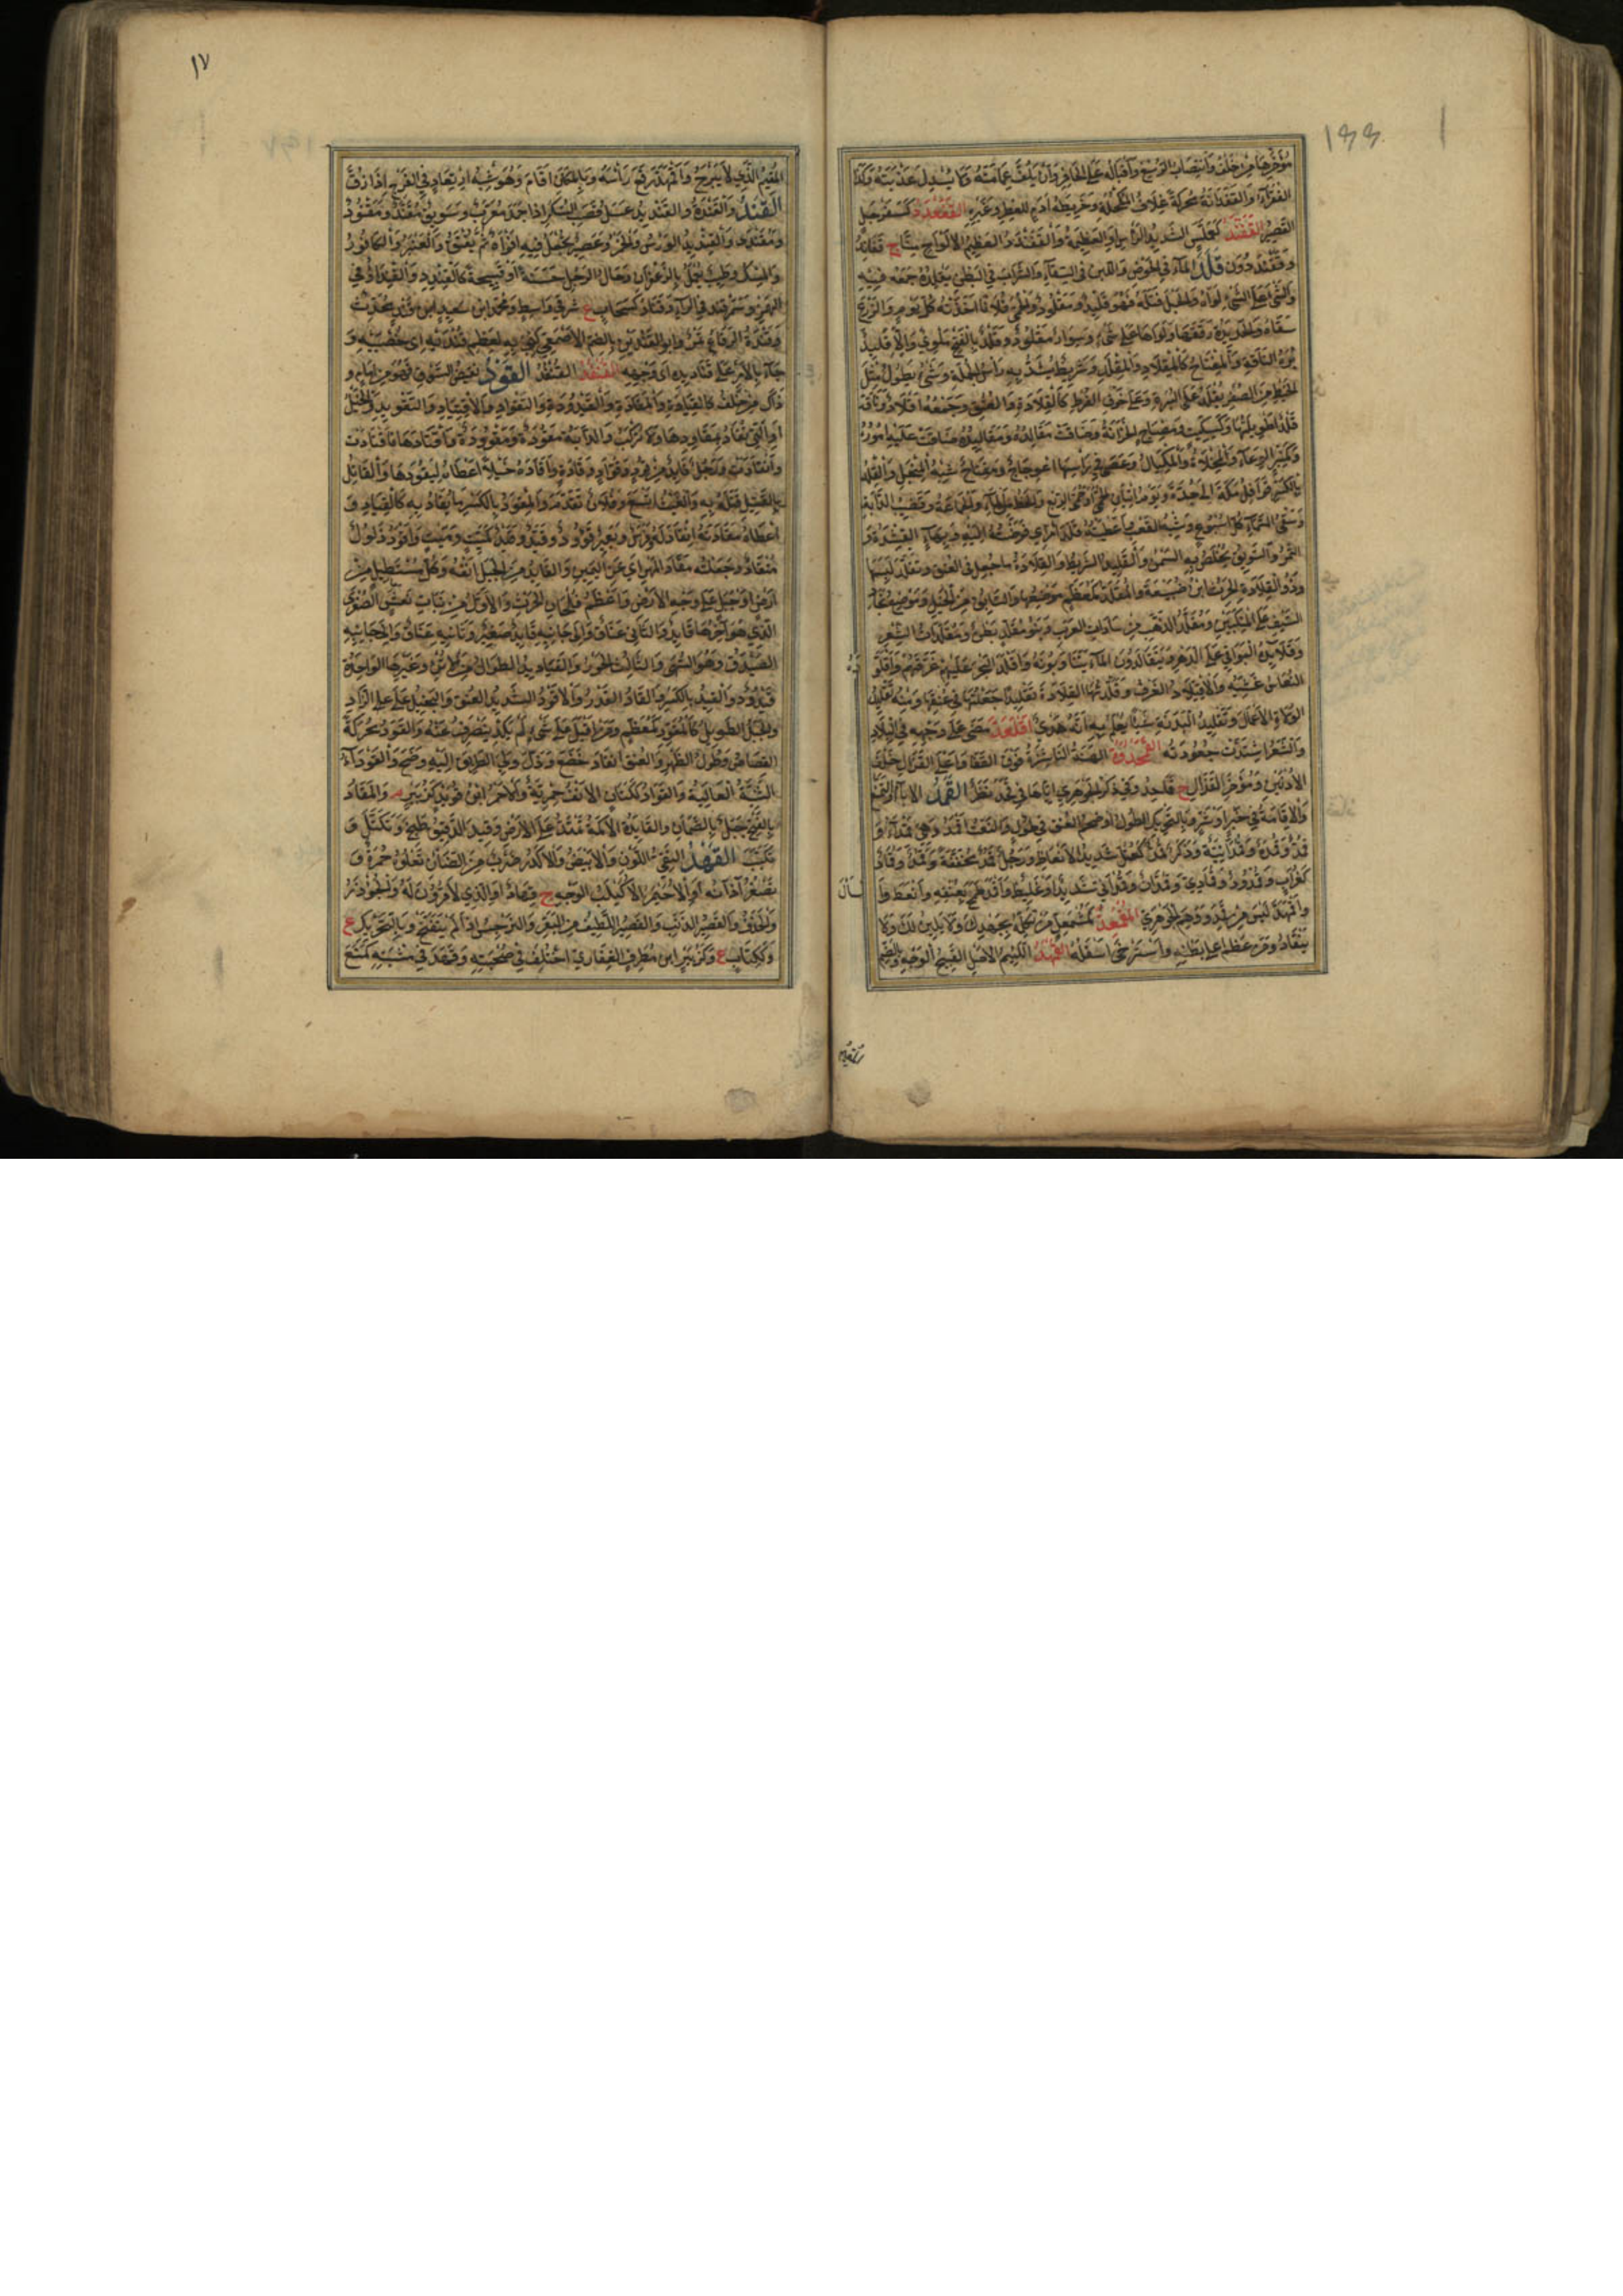 ١٩٦
مؤخرها من خلف وانتصاب الرسغ واقباله على الحافر وان يلف عمامته ولا يسدل عذبته وكذا
القفدآء والقفدانة محركة غلاف المكحلة وخريطة ادم للعطر وغيره القفعدد كسفرجل
القصير القفند كعملس الشديد الراس او العظيمه والقفندد العظيم الالواح منا ج قفاند
وقفنددون قلد المآء في الحوض واللبن في السقآء والشراب في البطن يقلده جمعه فيه
والشئ على الشئ لواه والحبل فتله فهو قليد ومقلود والحمى فلانا اخذته كل يوم والزرع
سقاه والحديدة رققها ولواها على شئ وسوار مقلود وقلد بالفتح ملوي والاقليد
برة الناقة والمفتاح كالمقلاد والمقلد وشريط يشد به راس الجلة وشئ يطول مثل
الخيط من الصفر يقلد على البرة وعلى خوق القرط كالقلادة والعنق وجمعه اقلاد وناقة
قلدآ طويلتها وكسكيت ومصباح الخزانة وضاقت مقالده ومقاليده ضاقت عليه اموره
وكمنبر الوعآء والمخلاة والمكيال وعصى في راسها اعوجاج ومفتاح شبه المنجل والقلد
بالكسر قوافل مكة الى جدة ويوم اتيان الحمى او حمى الربع والحظ من المآء والجماعة وقضيب الدابة
وسقي السمآء كل اسبوع وشبه القعب واعطيته قلد امري فوضته اليه وبهآء القشدة و
التمر والسويق يخلص به السمن والقليد الشريط والقلادة ما جعل في العنق وتقلد لبسها
وذو القلادة الحرث ابن ضبيعة والمقلد كمعظم موضعها والسابق من الخيل وموضع نجاد
السيف على المنكبين ومقلد الذهب من سادات العرب وبنو مقلد بطن ومقلدات الشعر
وقلآئده البواقي على الدهر ويتقالدون المآء يتناوبونه واقلد البحر عليهم غرقهم واقلود
النعاس غشيه والاقتلاد الغرف وقلدتها القلادة تقليدا جعلتها في عنقها ومنه تقليد
الولاة الاعمال وتقليد البدنة شيئا يعلم به انه هدي اقلعد مضى على وجهه في البلاد
والشعر اشتدت جعودته القمحدوة الهنة الناشزة فوق القفا واعلى القذال خلف
الاذنين ومؤخر القذال ج قماحد وفي ذكر الجوهري اياها في قحد نظر القمد الابآء والتمنع
والاقامة في خير او شر وبالتحريك الطول او ضخم العنق في طول والنعت اقمد وهي قمدآء و
قمد وقمدة وقمدانية وذكر قمد كعتل شديد الانعاظ ورجل قمد مخففة وقمد وقماد
كغراب وقمدود وقمادي وقمدان وقمداني شديد او غليظ واقمد طمح بعنقه وانعظ وا
واقمهد ليس من قمد ووهم الجوهري المقمعد كمشمعل من تكلمه بجهدك ولا يلين لك ولا
ينقاد ومن عظم اعلى بطنه واسترخى اسفله القمهد اللئيم الاصل القبيح الوجه وبالضم
المقيم
١٧
المقيم الذي لا يبرح واقمهد رفع راسه وبالمكان اقام وهو شبه ارتعاد في الفرخ اذا زق
القند والقندة والقنديد عسل قصب السكر اذا جمد معرب وسويق مقند ومقنود
ومقندى والقنديد الورس والخمر وعصير يجعل فيه افواه ثم يفتق والعنبر والكافور
والمسك وطيب يعمل بالزعفران وحال الرجل حسنة او قبيحة كالقنديد والقندأو في
الهمز وسمرقند في الرآء وقناد كسحاب ع شرقي واسط ومحمد ابن سعيد ابن قند محدث
وقندة الرقاع تمر وابو القندين بالضم الاصمعي كني به لعظم قندتيه اى خصييه و
جآء بالامر على قناديده اى وجهه القنفد القنفذ القود نقيض السوق فهو من امام و
ذاك من خلف كالقيادة والمقادة والقيدودة والتقواد والاقتياد والتقويد والخيل
او التي تقاد بمقاودها ولا تركب والدابة مقودة ومقوودة واقتادها فاقتادت
وانقادت ورجل قائد من قود وقواد وقادة واقاده خيلا اعطاه ليقودها والقاتل
بالقتيل قتله به والغيث اتسع وفلان تقدم والمقود بالكسر ما يقاد به كالقياد و
اعطاه مقادته انقاد له وفرس وبعير قوود وقيد وقيد كميت وميت واقود ذلول
منقاد وجعلته مقاد المهر اي عن اليمين والقائد من الجبل انفه وكل مستطيل من
ارض او جبل على وجه الارض واعظم فلجان الحرث والاول من بنات نعش الصغرى
الذي هو آخرها قائد والثاني عناق والى جانبه قائد صغير وثانيه عناق والى جانبه
الصيدق وهو السهى والثالث الحور والقياديد الطوال من الاتن وغيرها الواحدة
قيدود والقيد بالكسر والقاد القدر والاقود الشديد العنق والبخيل على الزاد
والجبل الطويل كالمقود كمعظم ومن اقبل على شئ لم يكد ينصرف عنه والقود محركة
القصاص وطول الظهر والعنق انقاد خضع وذل ولي الطريق اليه وضح والقودآء
الثنية العالية والقواد ككتان الانف حميرية والاحمر ابن قويد كزبير م والمقاد
بالفتح جبل بالصمان والقائدة الاكمة تمتد على الارض وقيد الدقيق طبخ وتكتل و
تكبب القهد النقي اللون والابيض والاكدر ضرب من الضان تعلوه حمرة و
تصغر آذانه او الاحيمر الاكيلب الوجه ج قهاد او الذي لا قرون له والجؤذر
والخذف والقصير الذنب والقصير اللطيف من البقر والنرجس اذا لم يتفتح وبالتحريك ع
وككتاب ع وكزبير ابن مطرف الغفاري اختلف في صحبته وقهد في مشيه كمنع